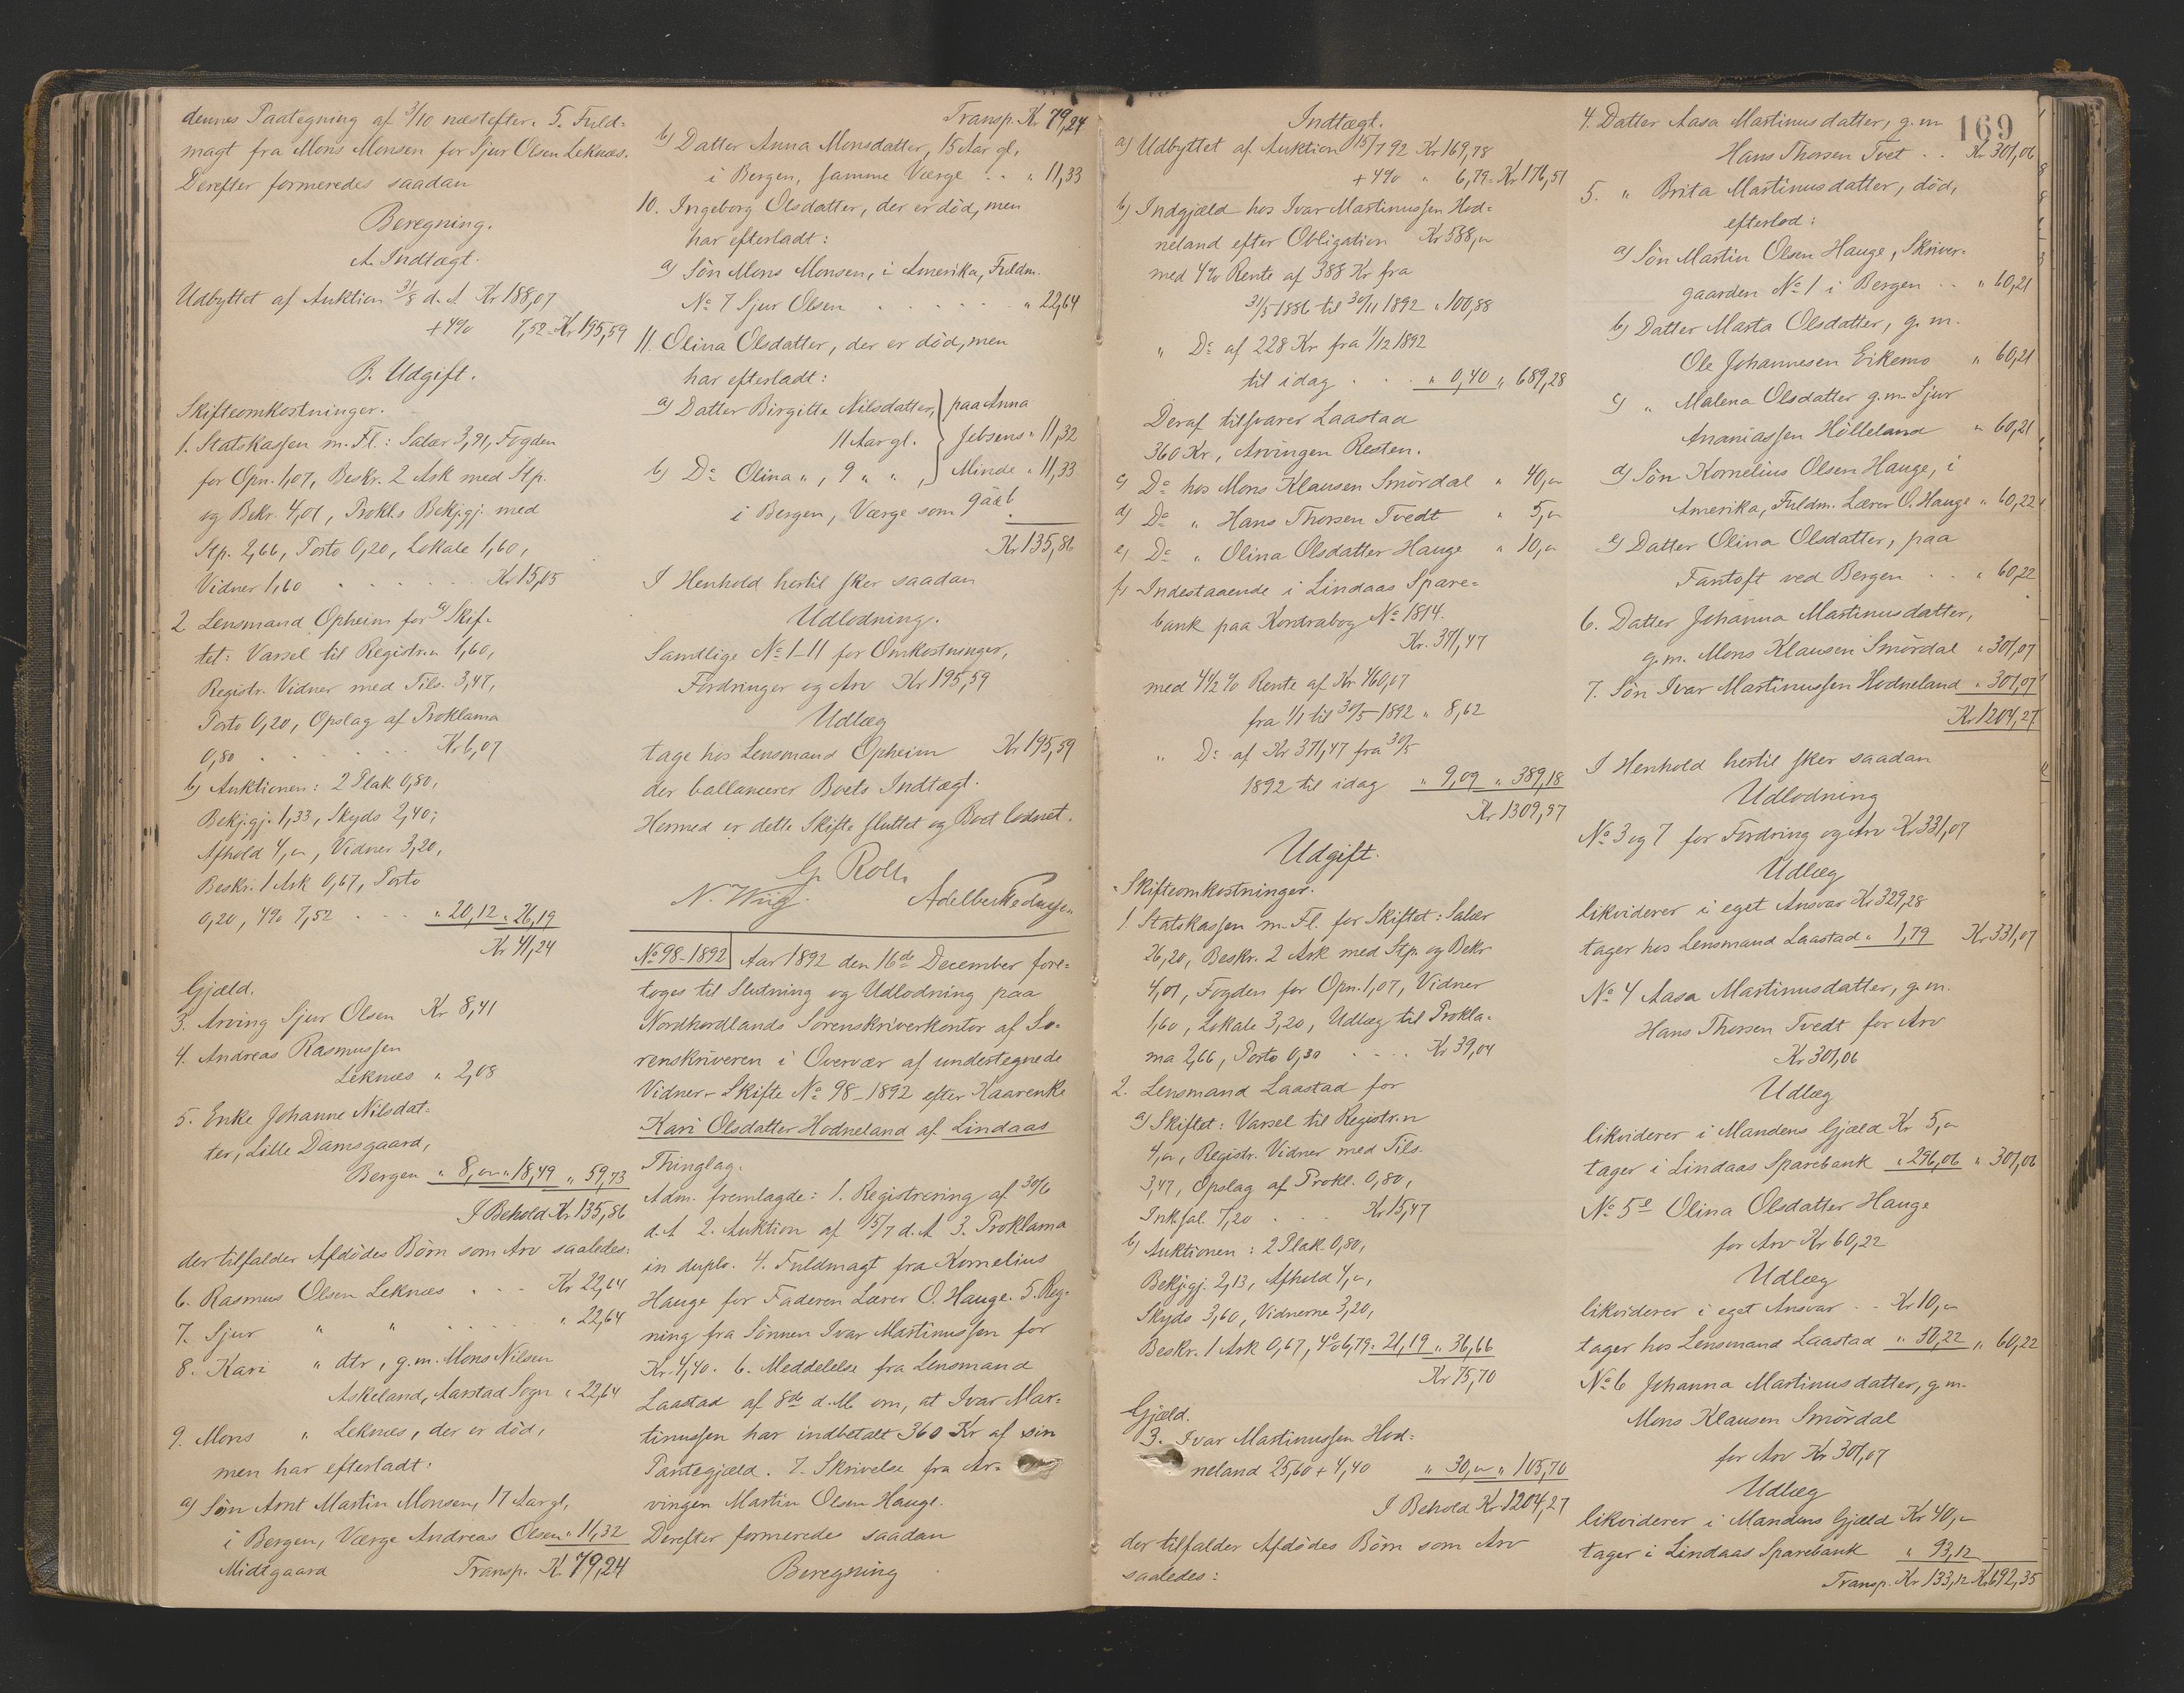 dennes Paategning af 3/10 næstefter. 5. Fuld-
magt fra Mons Monsen for Sjur Olsen Leknæs.
Derefter formeredes saadan
Beregning.
A. Indtægt.
Udbyttet af Auktion 31/8 d. A Kr 188,07
+ 4% 7,52 - Kr 195,59
B. Udgift.
Skifteomkostninger.
1. Statskassen m. Fl.: Salær 3,91, Fogden
for Opn. 1,07, Beskr. 2 Ark med Stp.
og Bekr. 4,01, Prokl.s Bekj.gj. med
Stp. 2,66, Porto 0,20, Lokale 1,60,
Vidner 1,60 . . . . . Kr 15,05
2 Lensmand Opheim for a) Skif-
tet: Varsel til Registr.n 1,60,
Registr. Vidner med Tils. 3,47,
Porto 0,20, Opslag af Proklama
0,80 . . . . . Kr 6,07
b) Auktionen: 2 Plak 0,80,
Bekj.gj. 1,33, Skyds 2,40;
Afhold 4,„, Vidner 3,20,
Beskr. 1 Ark 0,67, Porto
0,20, 4% 7,52 . . . „ 20,12 „ 26,19
Kr 41,24
Gjæld.
3. Arving Sjur Olsen Kr 8,41
4. Andreas Rasmussen
Leknæs „ 2,08
5. Enke Johanne Nilsdat-
ter, Lille Damsgaard,
Bergen „ 8,„ „ 18,49 „ 59,73
I Behold Kr 135,86
der tilfalder Afdødes Börn som Arv saaledes:
6. Rasmus Olsen Leknæs . . . Kr 22,64
7. Sjur „ „ . . . . . „ 22,64
8. Kari „ dtr, g. m. Mons Nilsen
Askeland, Aarstad Sogn „ 22,64
9. Mons „ Leknæs, der er död,
men har efterladt:
a) Sön Arnt Martin Monsen, 17 Aar gl,
i Bergen, Værge Andreas Olsen „ 11,32
Midtgaard Transp. Kr 79,24
Transp. Kr 79,24
b) Datter Anna Monsdatter, 15 Aar gl,
i Bergen, samme Værge . . „ 11,33
10. Ingeborg Olsdatter, der er död, men
har efterladt:
a) Sön Mons Monsen, i Amerika, Fuldm.
No 7 Sjur Olsen . . . . . „ 22,64
11. Olina Olsdatter, der er död, men
har efterladt:
a) Datter Birgitte Nilsdatter, paa Anna
11 Aar gl. Jebsens „ 11,32
b) Do Olina „, 9 „ „, Minde „ 11,33
i Bergen, Værge som 9 a & b.
Kr 135,86
I Henhold hertil sker saadan
Udlodning.
Samtlige No 1-11 for Omkostninger,
Fordringer og Arv Kr 195,59
Udlæg
tage hos Lensmand Opheim Kr 195,59
der ballancerer Boets Indtægt.
Hermed er dette Skifte sluttet og Boet lodnet.
G. Roll.
N. Wiig.
No 98-1892 Aar 1892 den 16de December fore-
toges til Slutning og Udlodning paa
Nordhordlands Sorenskriverkontor af So-
renskriveren i Overvær af undertegnede
Vidner - Skifte No 98-1892 efter Kaarenke
Kari Olsdatter Hodneland af Lindaas
Thinglag.
Adm. fremlagde: 1. Registrering af 30/6
d. A 2. Auktion af 15/7 d. A 3. Proklama
in duplo. 4. Fuldmagt fra Kornelius
Hauge for Faderen Lærer O. Hauge. 5. Reg-
ning fra Sönnen Ivar Martinussen for
Kr. 4,40. 6. Meddelelse fra Lensmand
Laastad af 8de d. M. om, at Ivar Mar-
tinussen har indbetalt 360 Kr af sin
Pantegjæld. 7. Skrivelse fra Ar-
vingen Martin Olsen Hauge.
Derefter formeredes saadan
Beregning
169
Indtægt.
a) Udbyttet af Auktion 15/7 92 Kr 169,78
+ 4% „ 6,79 - Kr 176,57
b) Indgjæld hos Ivar Martinussen Hod-
neland efter Obligation Kr 588,„
med 4% Rente af 388 Kr fra
31/5 1886 til 30/11 1892 „ 100,88
„ Do af 228 Kr fra 1/12 1892
til idag . . . „ 0,40 „ 689,28
Deraf tilsvarer Laastad
360 Kr, Arvingen Resten.
c) Do hos Mons Klausen Smördal „ 40,„
d) Do „ Hans Thorsen Tvedt „ 5,„
e) Do „ Olina Olsdatter Hauge „ 10,„
f) Indestaaende i Lindaas Spare-
bank paa Kontrabog No 1814.
Kr. 371,47
med 4 1/2 % Rente af Kr 460,07
fra 1/1 til 30/5 1892 „ 8,62
„ Do af Kr 371,47 fra 30/5
1892 til idag „ 9,09 „ 389,18
Kr 1309,97
Udgift.
Skifteomkostninger.
1. Statskassen m. Fl. for Skiftet: Salær
26,20, Beskr. 2 Ark med Stp. og Bekr
4,01, Fogden for Opn. 1,07, Vidner
1,60, Lokale 3,20, Udlæg til Prokla-
ma 2,66, Porto 0,30 . . . . Kr 39,04
2. Lensmand Laastad for
a) Skiftet: Varsel til Registr.n
4,„, Registr. Vidner med Tils.
3,47, Opslag af Prokl. 0,80,
Ink.sal. 7,20 . . . Kr 15,47
b) Auktionen: 2 Plak. 0,80,
Bekj.gj. 2,13, Afhold 4,„,
Skyds 3,60, Vidnerne 3,20,
Beskr. 1 Ark 0,67, 4% 6,79 - 21,19 „ 36,66
Kr 75,70
Gjæld.
3. Ivar Martinussen Hod-
neland 25,60 + 4,40 „ 30,„ „ 105,70
I Behold Kr 1204,27
der tilfalder Afdödes Börn som Arv
saaledes:
4. Datter Aasa Martinusdatter, g. m
Hans Thorsen Tvet . . Kr 301,06
5. „ Brita Martinusdatter, död,
efterlod:
a) Sön Martin Olsen Hauge, Skriver-
gaarden No 1 i Bergen . . „ 60,21
b) Datter Marta Olsdatter, g. m.
Ole Johannesen Eikemo „ 60,21
c) „ Malena Olsdatter g. m. Sjur
Ananiassen Hölleland „ 60,21
d) Sön Kornelius Olsen Hauge, i
Amerika, Fuldm. Lærer O. Hauge „ 60,22
e) Datter Olina Olsdatter, paa
Fantoft ved Bergen . . „ 60,22
6. Datter Johanna Martinusdatter,
g. m. Mons Klausen Smördal „ 301,07
7. Sön Ivar Martinussen Hodneland „ 301,07
Kr 1204,27
I Henhold hertil sker saadan
Udlodning
No 3 og 7 for Fordring og Arv Kr 331,07
Udlæg
likviderer i eget Ansvar Kr 329,28
tager hos Lensmand Laastad „ 1,79 Kr 331,07
No 4 Aasa Martinusdatter, g. m.
Hans Thorsen Tvedt for Arv
Kr 301,06
Udlæg
likviderer i Mandens Gjæld Kr 5,„
tager i Lindaas Sparebank „ 296,06 „ 301,06
No 5e Olina Olsdatter Hauge
for Arv Kr 60,22
Udlæg
likviderer i eget Ansvar . . Kr 10,„
tager hos Lensmand Laastad „ 50,22 „ 60,22
No 6 Johanna Martinusdatter, g. m.
Mons Klausen Smördal
for Arv Kr 301,07
Udlæg
likviderer i Mandens Gjæld Kr 40,„
tager i Lindaas Sparebank „ 93,12
Transp. Kr 133,12 Kr 692,35